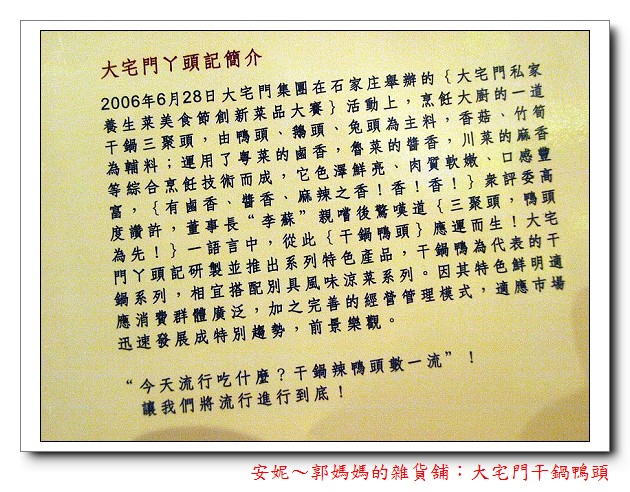 大宅門丫頭記簡介
2006年6月28日大宅門集團在石家庄舉辦的{大宅門私家
養生菜美食節創新菜品大賽}活動上,烹飪大廚的一道
干鍋三聚頭,由鴨頭、鵝頭、兔頭為主料,香菇、竹筍
為輔料;運用了粵菜的鹵香,魯菜的醬香,川菜的麻香
等綜合烹飪技術而成,它色澤鮮亮、肉質軟嫩、口感豐
富,{有鹵香、醬香、麻辣之香!香!香!}衆評委高
度讚許,董事長“李蘇”親嚐後驚嘆道{三聚頭,鴨頭
為先!}一語言中,從此{干鍋鴨頭}應運而生!大宅
門丫頭記研製並推出系列特色產品,干鍋鴨為代表的干
鍋系列,相宜搭配別具風味涼菜系列。因其特色鮮明適
應消費群體廣泛,加之完善的經營管理模式,適應市場
迅速發展成特別趨勢,前景樂觀。
“今天流行吃什麼?干鍋辣鴨頭數一流”!
讓我們將流行進行到底!
安妮~郭媽媽的雜貨舖:大宅門干鍋鴨頭